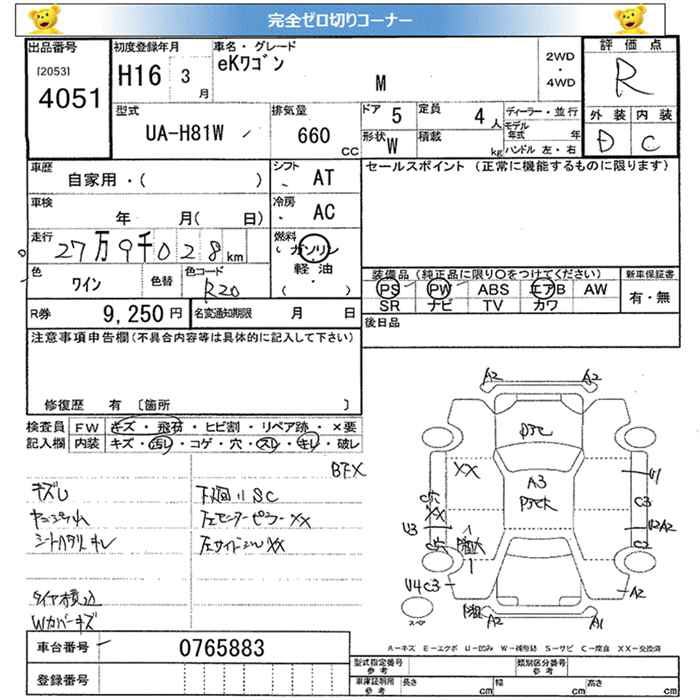 完全ゼロ切りコーナー
出品番号
[2053]
4051
初度登録年月
H16 3 月
車名・グレード
eKワゴン
M
2WD
・
4WD
評価点
R
外装 内装
D C
型式
UA-H81W
排気量
660 cc
ドア 5
定員 4 人
形状 W
積載 kg
ディーラー・並行
モデル年式 年
ハンドル 左・右
車歴
自家用・( )
シフト
AT
車検
年 月( 日)
冷房
AC
走行
27万9千028km
燃料
(ガソリン
軽油
( ・ )
色
ワイン
色替
色コード
R20
R券 9,250円
名変通知期限 月 日
セールスポイント (正常に機能するものに限ります)
装備品 (純正品に限り○をつけてください)
新車保証書
PS PW ABS エアB AW
有・無
SR ナビ TV カワ
後日品
注意事項申告欄(不具合内容等は具体的に記入して下さい)
修復歴 有 〔箇所 〕
検査員 FW キズ・飛石・ヒビ割・リペア跡・×要
記入欄 内装 キズ・汚レ・コゲ・穴・スレ・キレ・破レ
キズU
下廻リSC
左センターピラーXX
シートハタリ キレ
左サイドシルXX
タイヤ積込
Wカバーキズ
A2 A2
XX
A3
U1
C3
U2A2
U3
U4C3
A2
A2 A1
スペア
A−キズ E−エクボ U−凹み W−補修跡 S−サビ C−腐食 XX−交換済
車台番号
0765883
登録番号
型式指定番号
参考
類別区分番号
参考
車庫証明用
参考
長さ cm 幅 cm 高さ cm